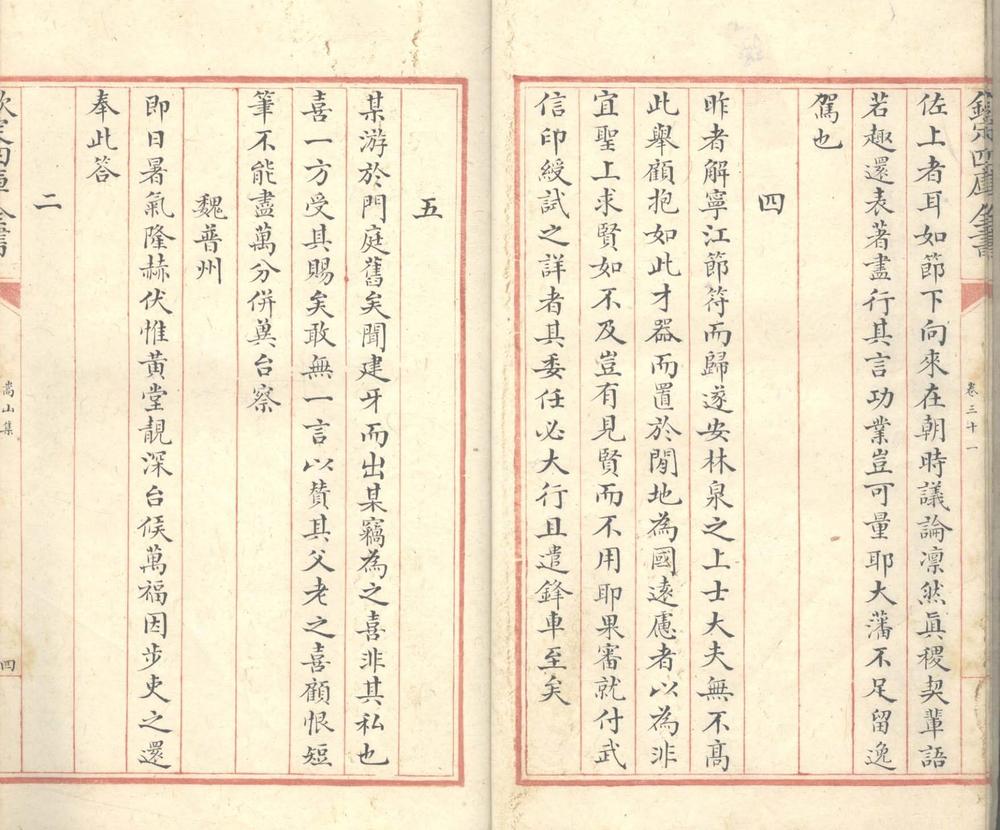 欽定四庫全書
卷三十一
佐上者耳如節下向來在朝時議論凛然真稷契輩語
若趣還表著盡行其言功業豈可量耶大藩不足留逸
駕也
四
昨者解寧江節符而歸遂安林泉之上士大夫無不髙
此舉顧抱如此才器而置於閒地為國逺慮者以為非
宜聖上求賢如不及豈有見賢而不用耶果審就付武
信印綬試之詳者其委任必大行且遣鋒車至矣
五
某游於門庭舊矣聞建牙而出某竊為之喜非其私也
喜一方受其賜矣敢無一言以賛其父老之喜顧恨短
筆不能盡萬分併冀台察
魏普州
即日暑氣隆赫伏惟黄堂靚深台候萬福因步吏之還
奉此答
二
欽定四庫全書
嵩山集
四